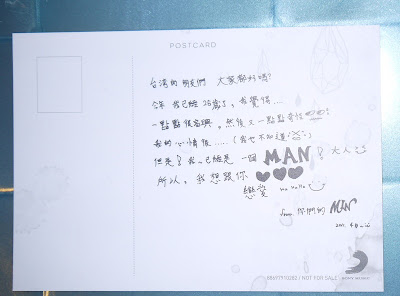 POSTCARD
台湾的朋友們 大家都好嗎?
今年 我已經 26歲了, 我覺得...
一點點很高興, 然後又一點點奇怪
我的心情很..... (我也不知道!)
但是! 我 已經是 一個 MAN! 大人
所以, 我想跟你 ♥♥♥
戀愛 ha haha
from 你們的
2011.
88697910282 / NOT FOR SALE
SONY MUSIC